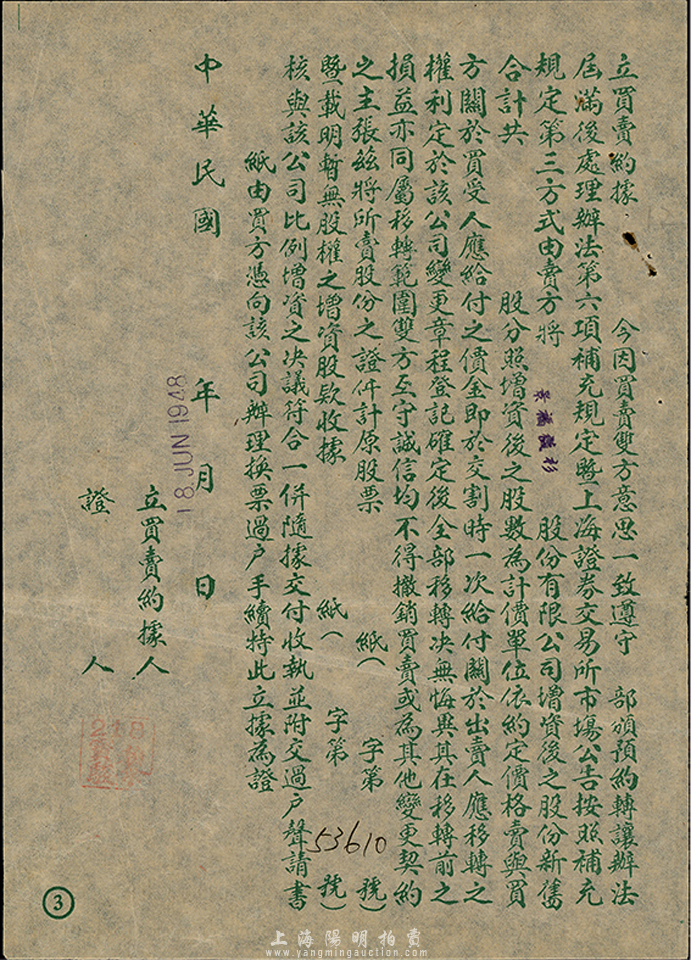 立買賣約據 今因買賣雙方意思一致遵守 部頒預約轉讓辦法
屆滿後處理辦法第六項補充規定暨上海證券交易所市場公告按照補充
規定第三方式由賣方將 股份有限公司增資後之股份新舊
合計共 股分照增資後之股數為計價單位依約定價格賣與買
方關於買受人應給付之價金即於交割時一次給付關於出賣人應移轉之
權利定於該公司變更章程登記確定後全部移轉決無悔異其在移轉前之
損益亦同屬移轉範圍雙方互守誠信均不得撤銷買賣或為其他變更契約
之主張茲將所賣股份之證件計原股票 紙( 字第 號)
暨載明暫無股權之增資股款收據 紙( 字第 53610 號)
核與該公司比例增資之決議符合一併隨據交付收執並附交過戶聲請書
紙由買方憑向該公司辦理換票過戶手續特此立據為證
中華民國 年 月 日
18 JUN 1948
立買賣約據人
證 人
3
上海陽明拍賣
www.yangmingauction.com